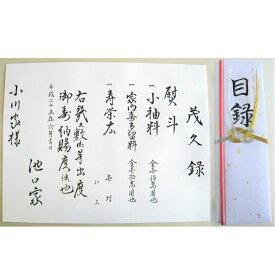 茂久録
熨斗
一小袖料　金壱百萬圓也
一家内喜多留料　金壱拾萬圓也
一寿栄広　壱対
以上
右幾久敷御芽出度
御寿納賜度候也
平成二十五年六月吉日
池口家
小川家様
目録